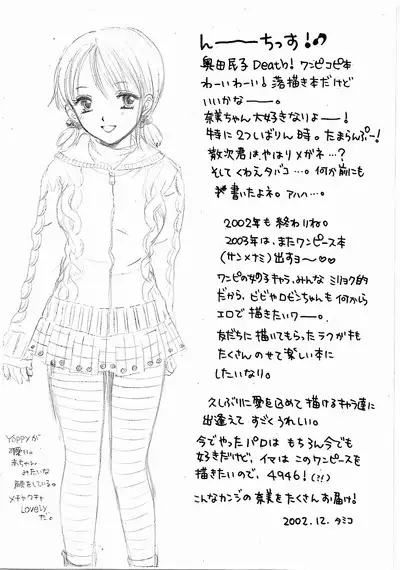 んーーちっす!♪
奥田民子Death! ワンピコピ本
わーいわーい! 落描き本だけど
いいかなーー。
奈美ちゃん大好きなりよー!
特に2ついばりん時。たまらんぷー!
散次君は、やはりメガネ…?
そしてくわえタバコ…。何か前にも
書いたよネ。アハハ…。
2002年も終わりね。
2003年は、またワンピース本
(サン×ナミ)出すヨ〜♡♡
ワンピの女の子キャラ、みんなミリョク的
だから、ビビやロビンちゃんも何かしら
エロで描きたいワー。
友だちに描いてもらったラクガキも
たくさんのせて楽しい本に
したいなり。
久しぶりに愛を込めて描けるキャラ達に
出逢えてすごくうれしい。
今までやったパロはもちろん今でも
好きだけど、イマはこのワンピースを
描きたいので、4946!(?!)
こんなカンジの奈美をたくさんお届け!
2002.12.タミコ
YOPPYが
可愛い。
赤ちゃん
みたいな
顔をしている。
メチャクチャ
Lovely
だ。